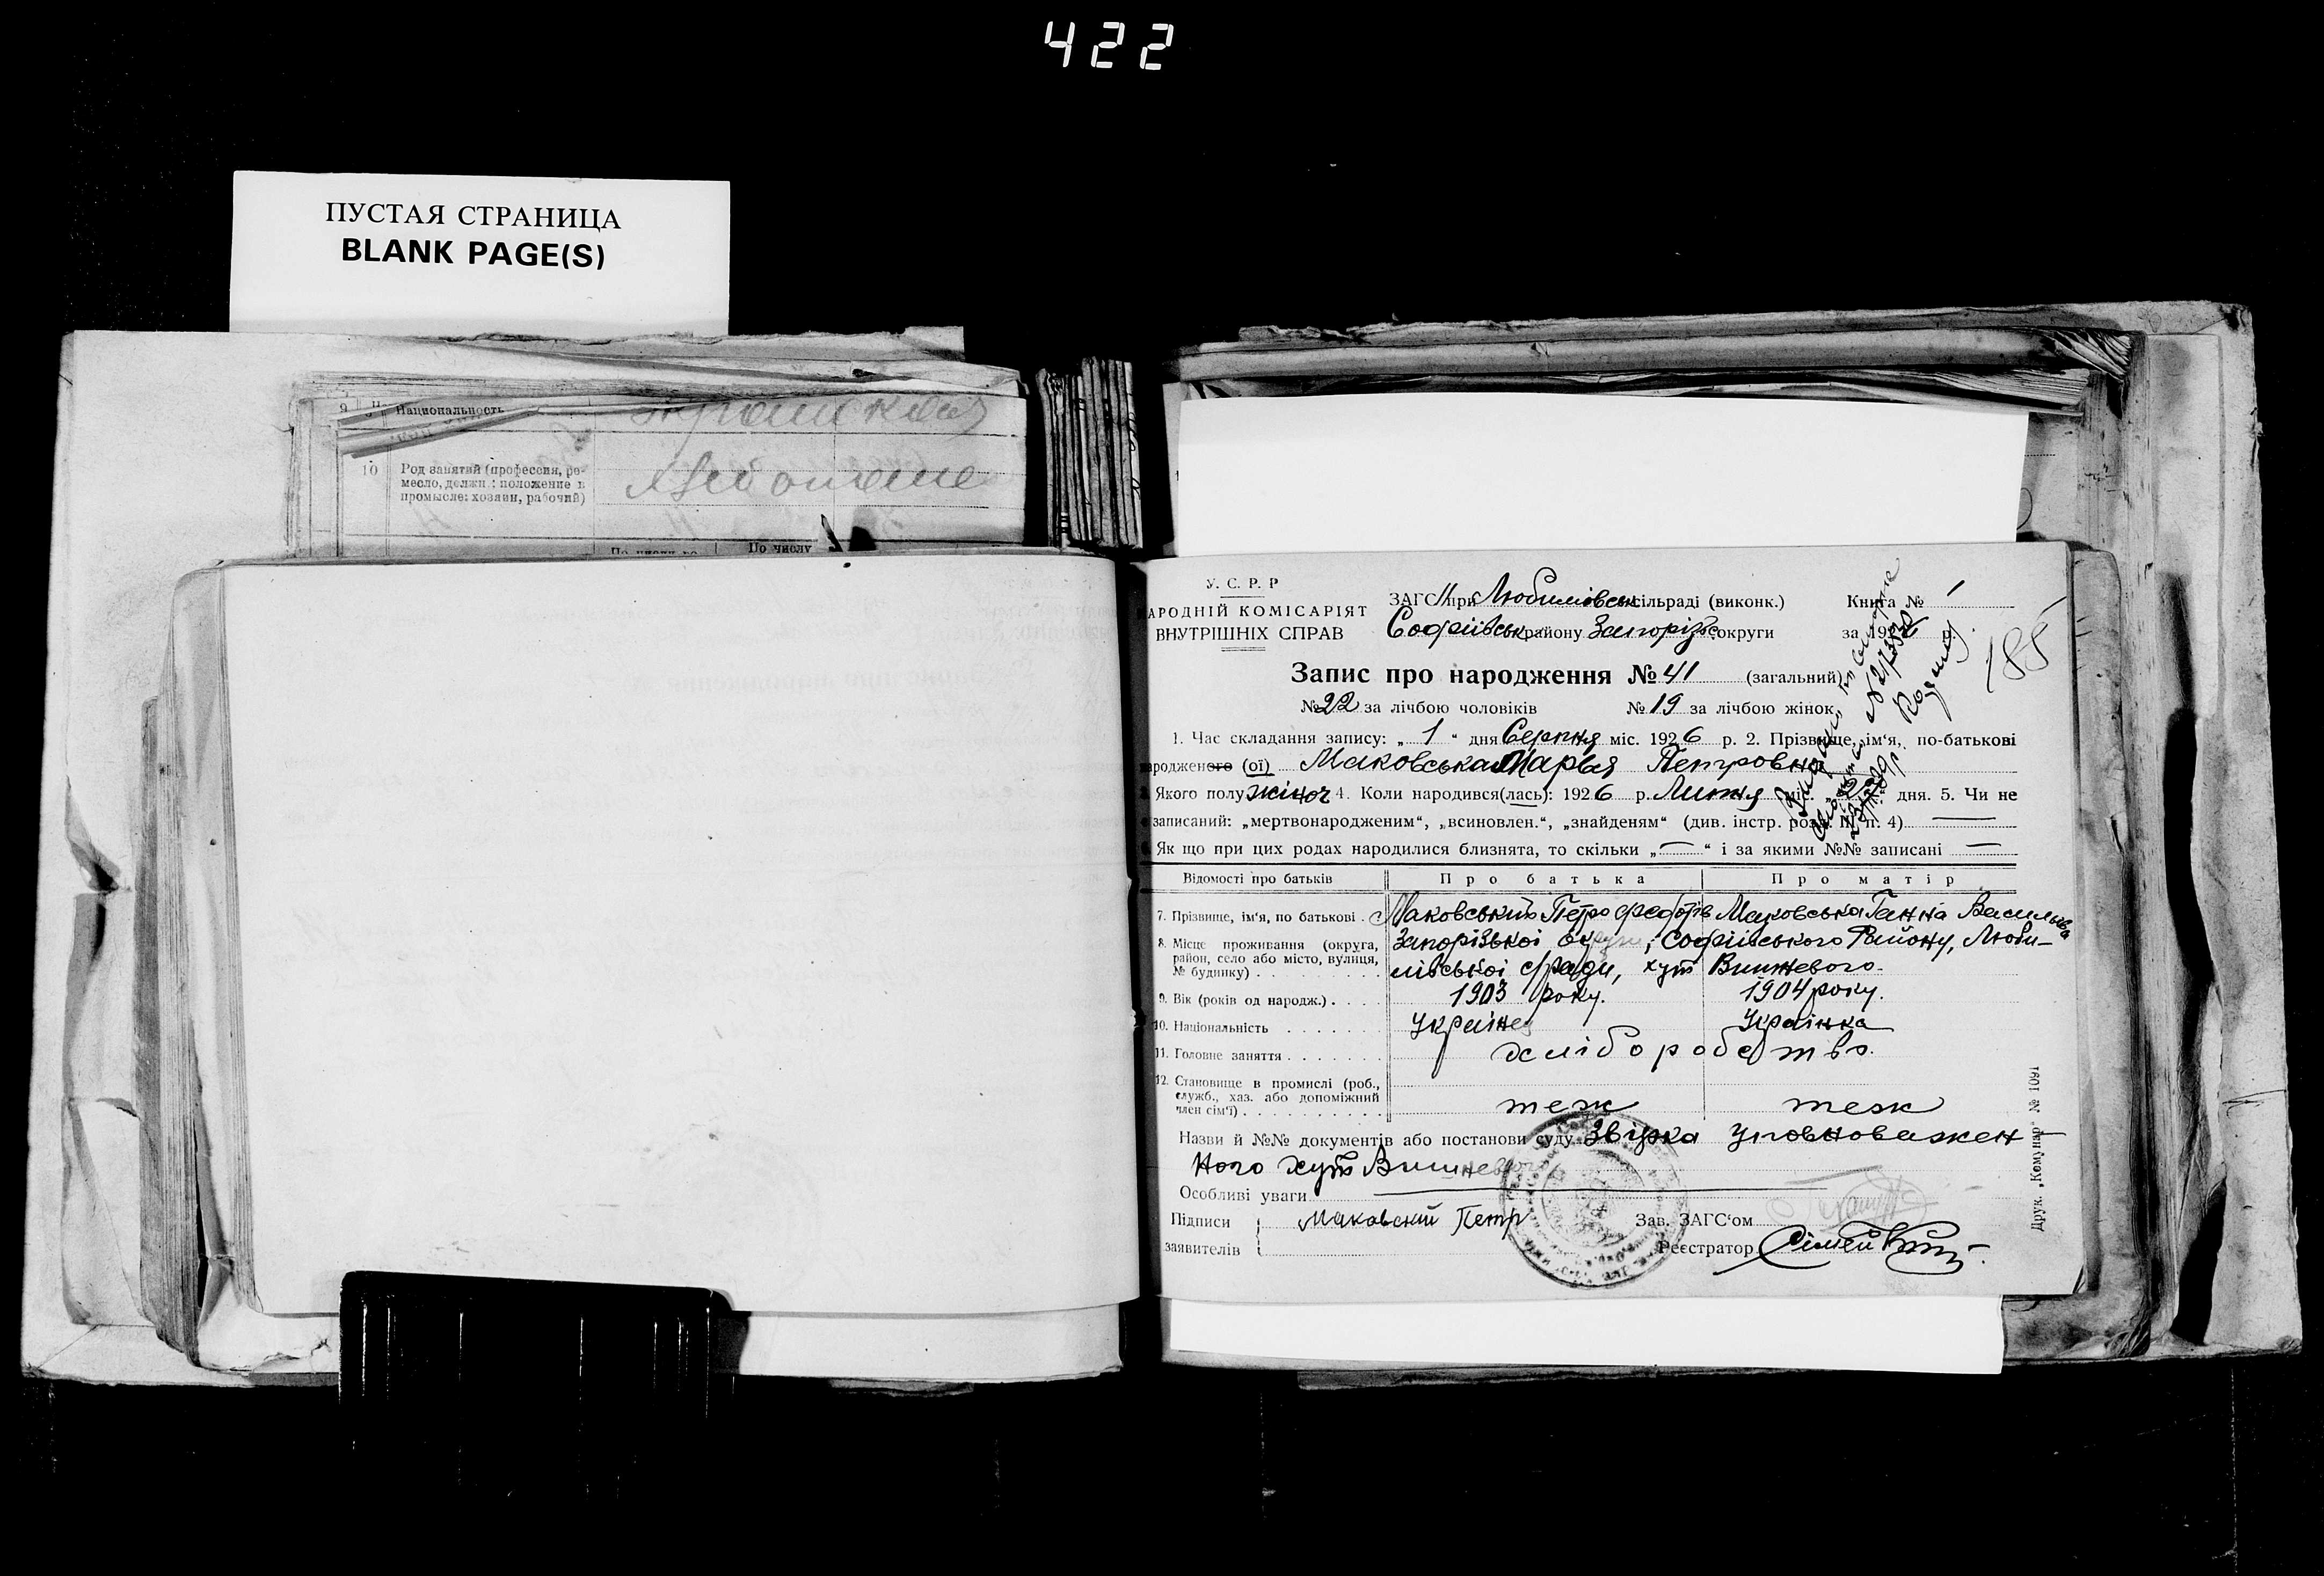 422
ПУСТАЯ СТРАНИЦА
BLANK PAGE(S)
Национальность
10 Род занятий (профессия, ре-
месло, должн.: положение в
промысле: хозяин, рабочий)
По числу
У. С. Р. Р
НАРОДНІЙ КОМІСАРІЯТ
ВНУТРІШНІХ СПРАВ
ЗАГС при Любимівськ сільраді (виконк.)
Софіївськ району Запорізьк округи
Книга № 1
за 1926 р.
185
Запис про народження № 41 (загальний)
№ 22 за лічбою чоловіків № 19 за лічбою жінок
1. Час складання запису: „ 1 “ дня Серпня міс. 1926 р. 2. Прізвище, ім‘я, по-батькові
народженого (ої) Маковська Марья Петровна
Якого полу жіноч 4. Коли народився(лась): 1926 р. Липня міс. дня. 5. Чи не
записаний: „мертвонародженим“, „всиновлен.“, „знайденям“ (див. інстр. розд. III п. 4) —
Як що при цих родах народилися близнята, то скільки „ — “ і за якими №№ записані —
Відомості про батьків Про батька Про матір
7. Прізвище, ім‘я, по батькові Маковський Петро Федорів Маковська Ганна Васильова
8. Місце проживання (округа, Запорізької округи, Софіївського Району, Люби-
район, село або місто, вулиця,
№ будинку) мівської с/ради, хут Вишневого
9. Вік (років од народж.) 1903 року. 1904 року.
10. Національність Українец Українка
11. Головне заняття хліборобство.
12. Становище в промислі (роб.,
служб., хаз. або допоміжний
член сім‘ї) теж теж
Назви й №№ документів або постанови суду Звірка уповноважен-
ного хут Вишневого
Особливі уваги
Підписи Маковский Петр Зав. ЗАГС‘ом
заявителів Реєстратор
Друк. „Комунар“ № 1091